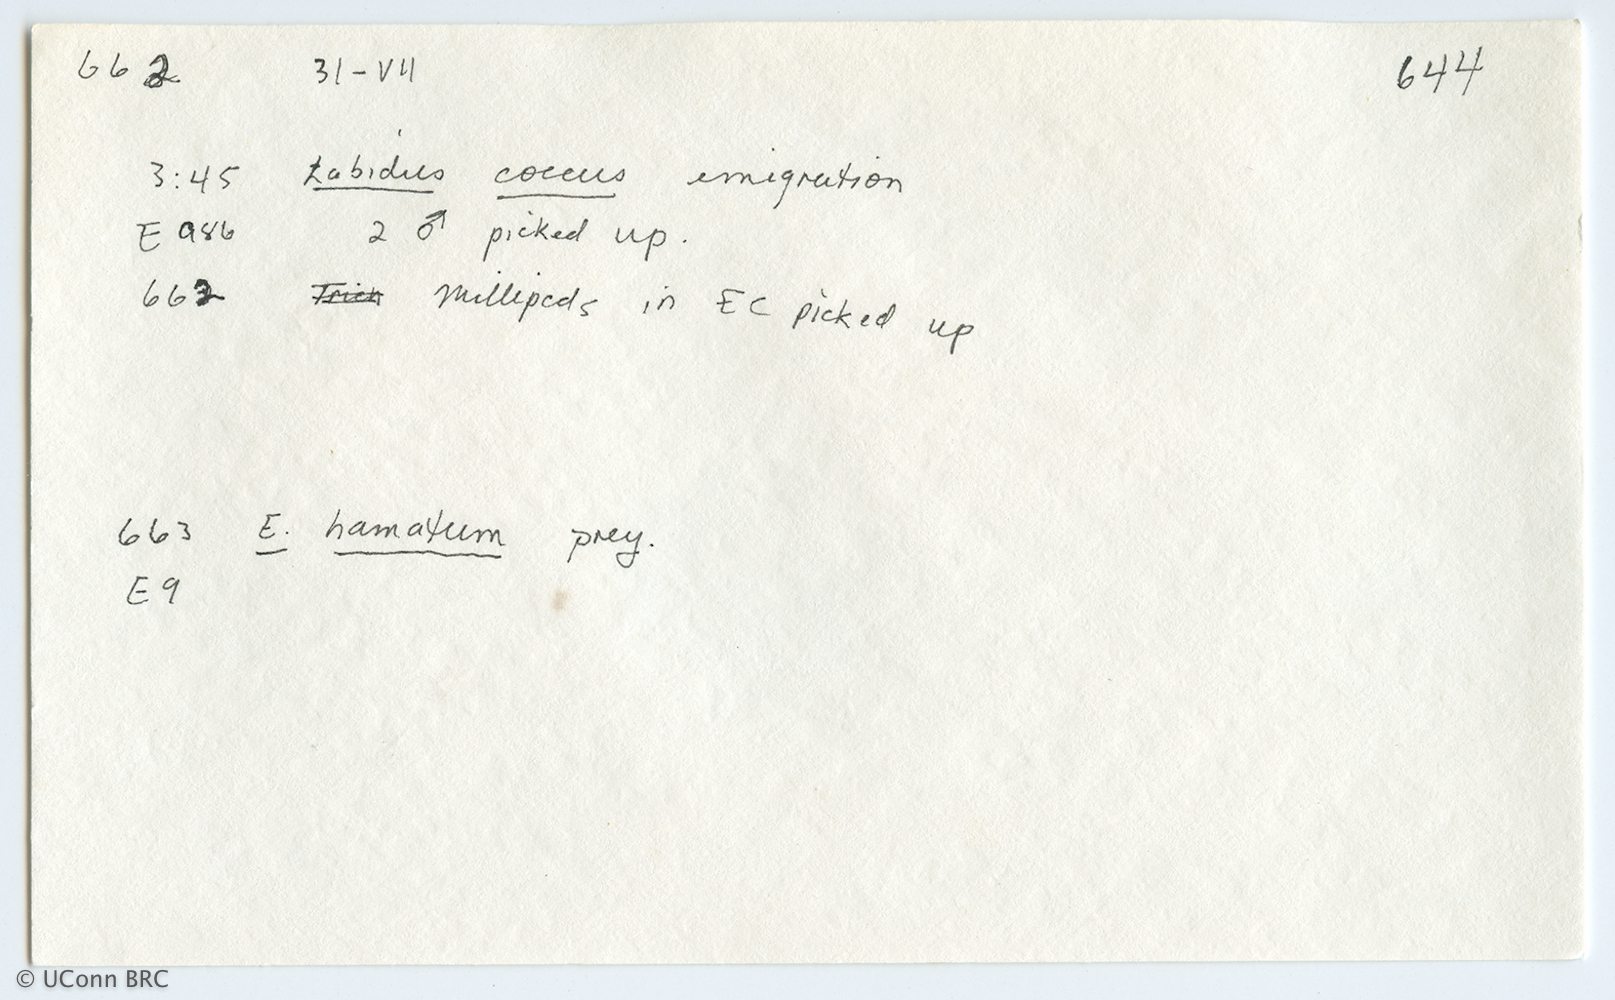 662 31-VII 644
3:45 Labidus coecus emigration
E 986 2 ♂ picked up.
662 Trich Millipeds in EC picked up
663 E. hamatum prey.
E 9
© UConn BRC